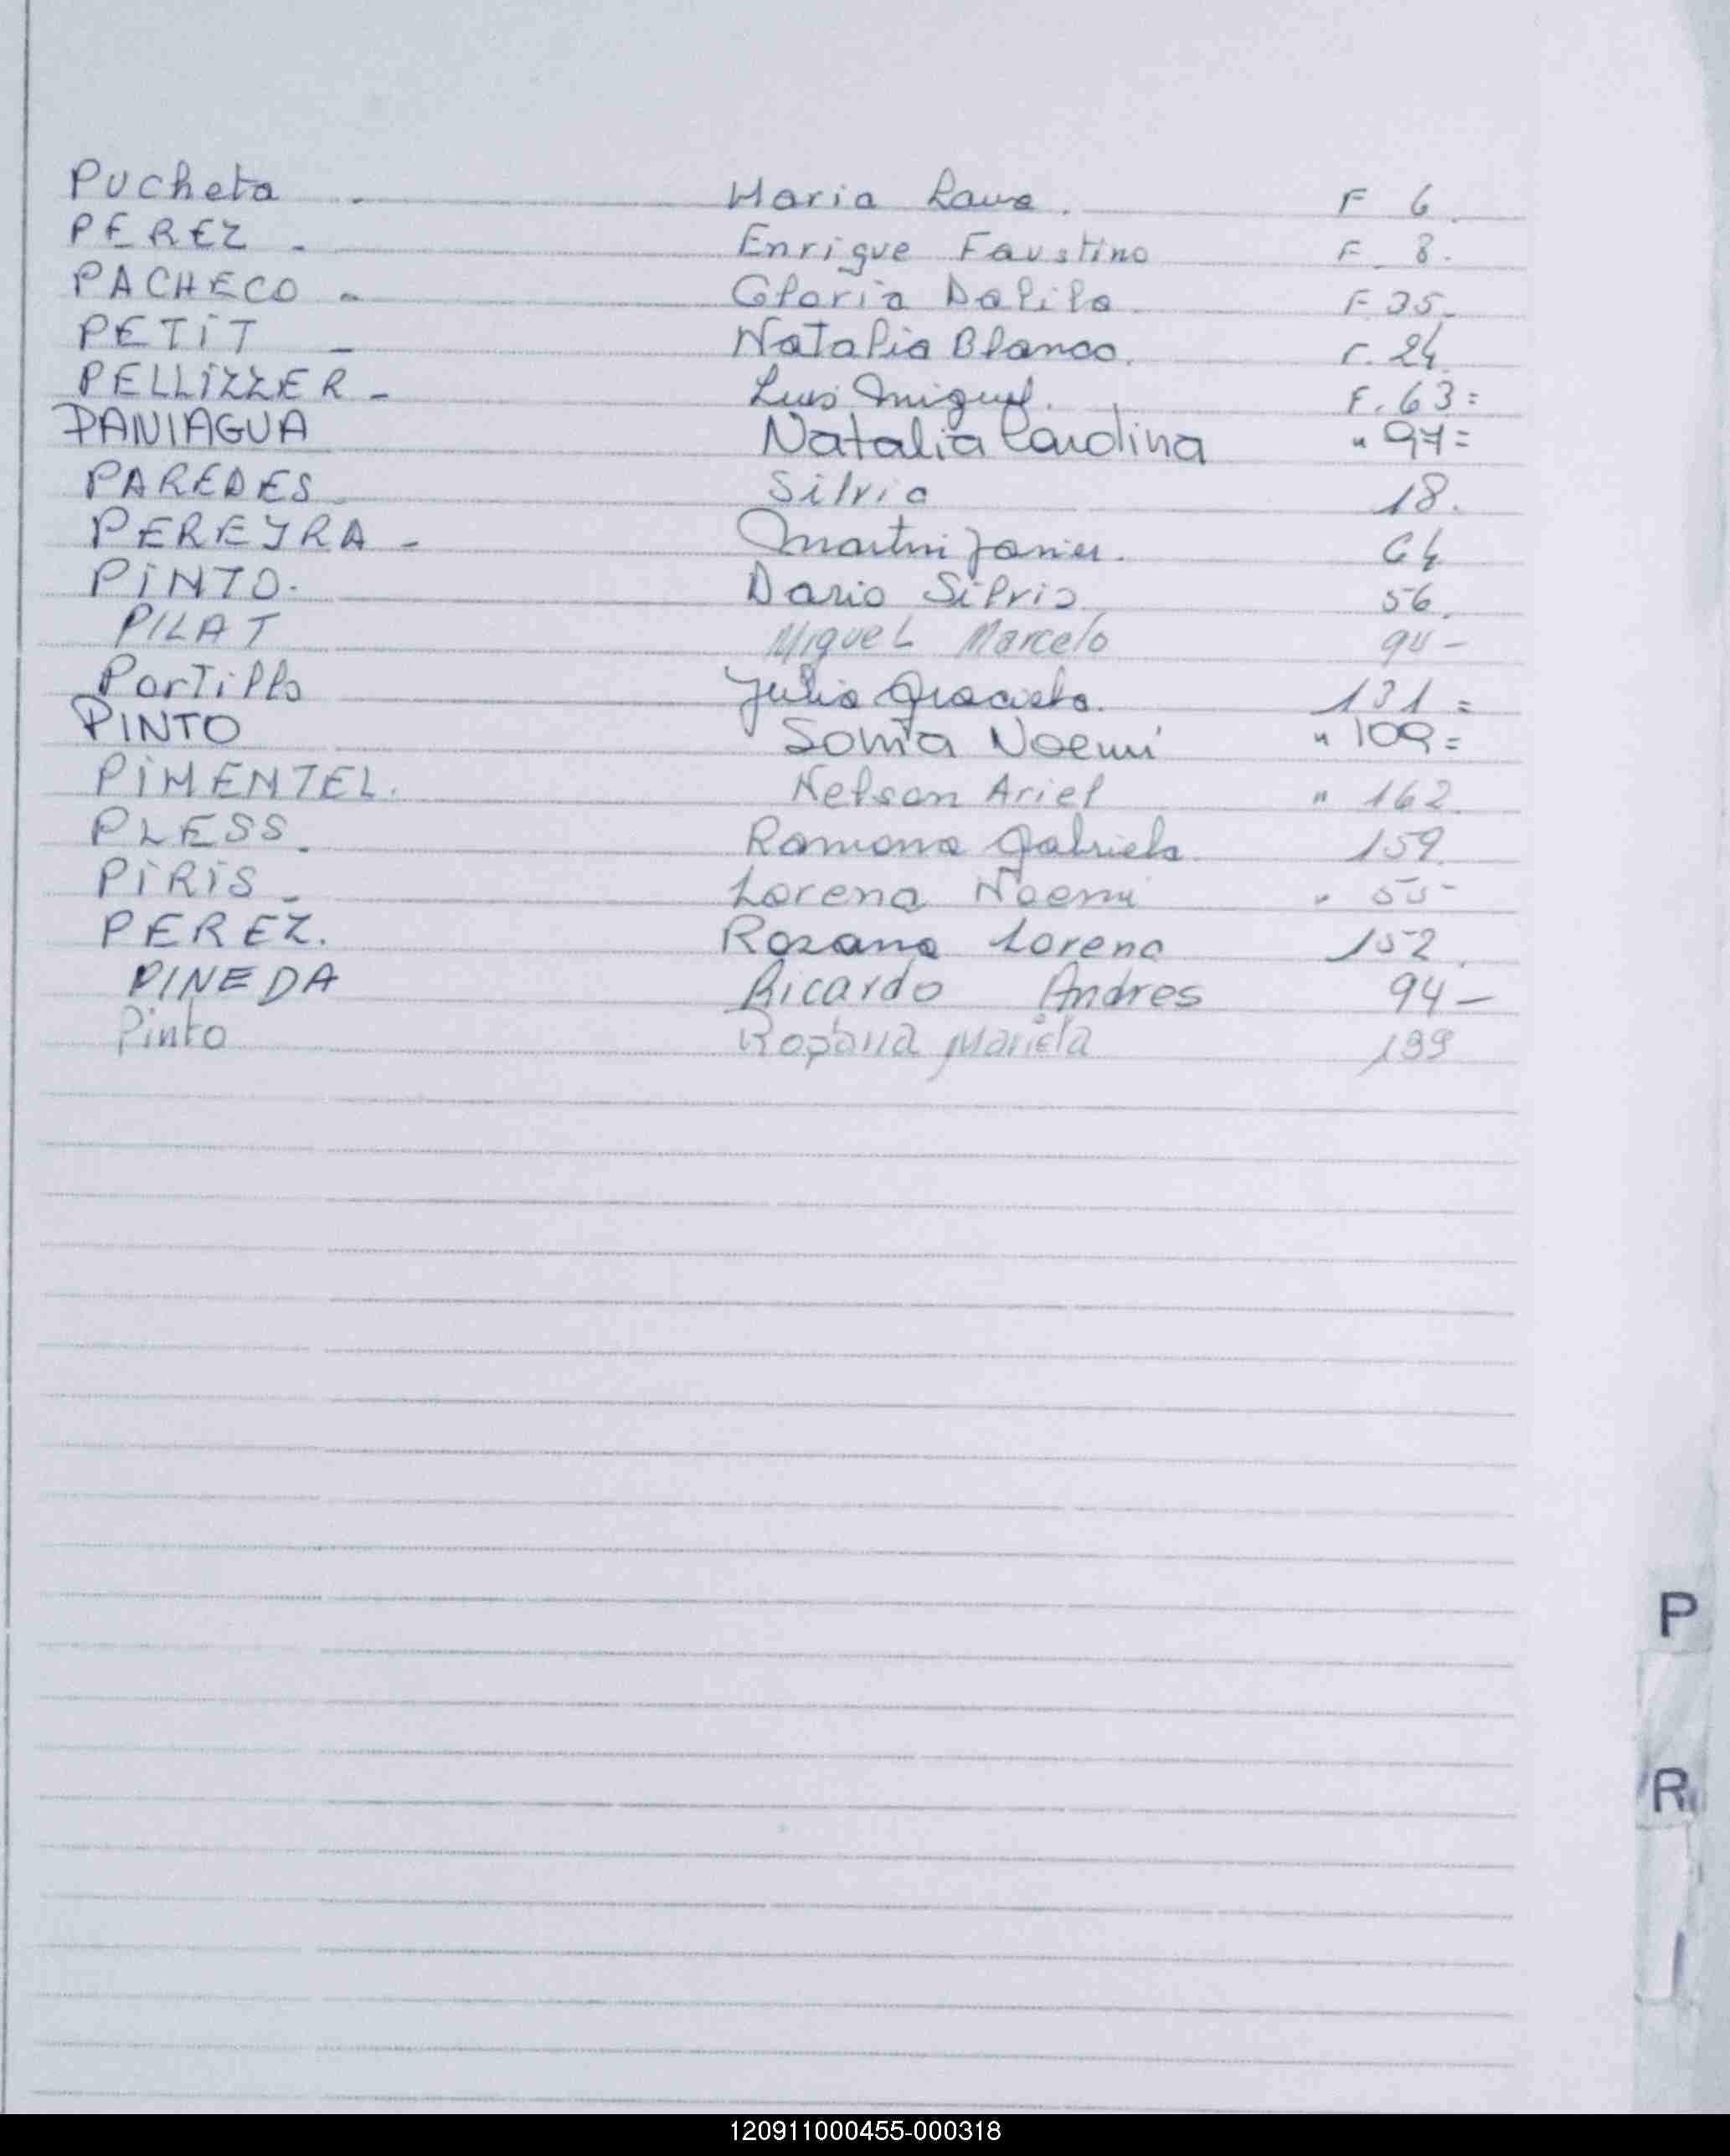 Pucheta - Maria Laura. F 6.
PEREZ - Enrique Faustino F. 8.
PACHECO - Gloria Dalila F. 35-
PETIT - Natalia Blanca. F. 24
PELLIZZER - Luis Miguel. F. 63=
PANIAGUA Natalia Carolina " 97=
PAREDES Silvia 18.
PEREYRA - Martin Javier. 64
PINTO. Dario Silvio 56.
PILAT Miguel Marcelo 94-
Portillo Julia Graciela. 131=
PINTO Sonia Noemi " 109=
PIMENTEL. Nelson Ariel " 162
PLESS. Ramona Gabriela 159.
PIRIS - Lorena Noemi " 55-
PEREZ. Rosana Lorena 152.
PINEDA Ricardo Andres 94-
Pinto Mariela 199
P
R
120911000455-000318